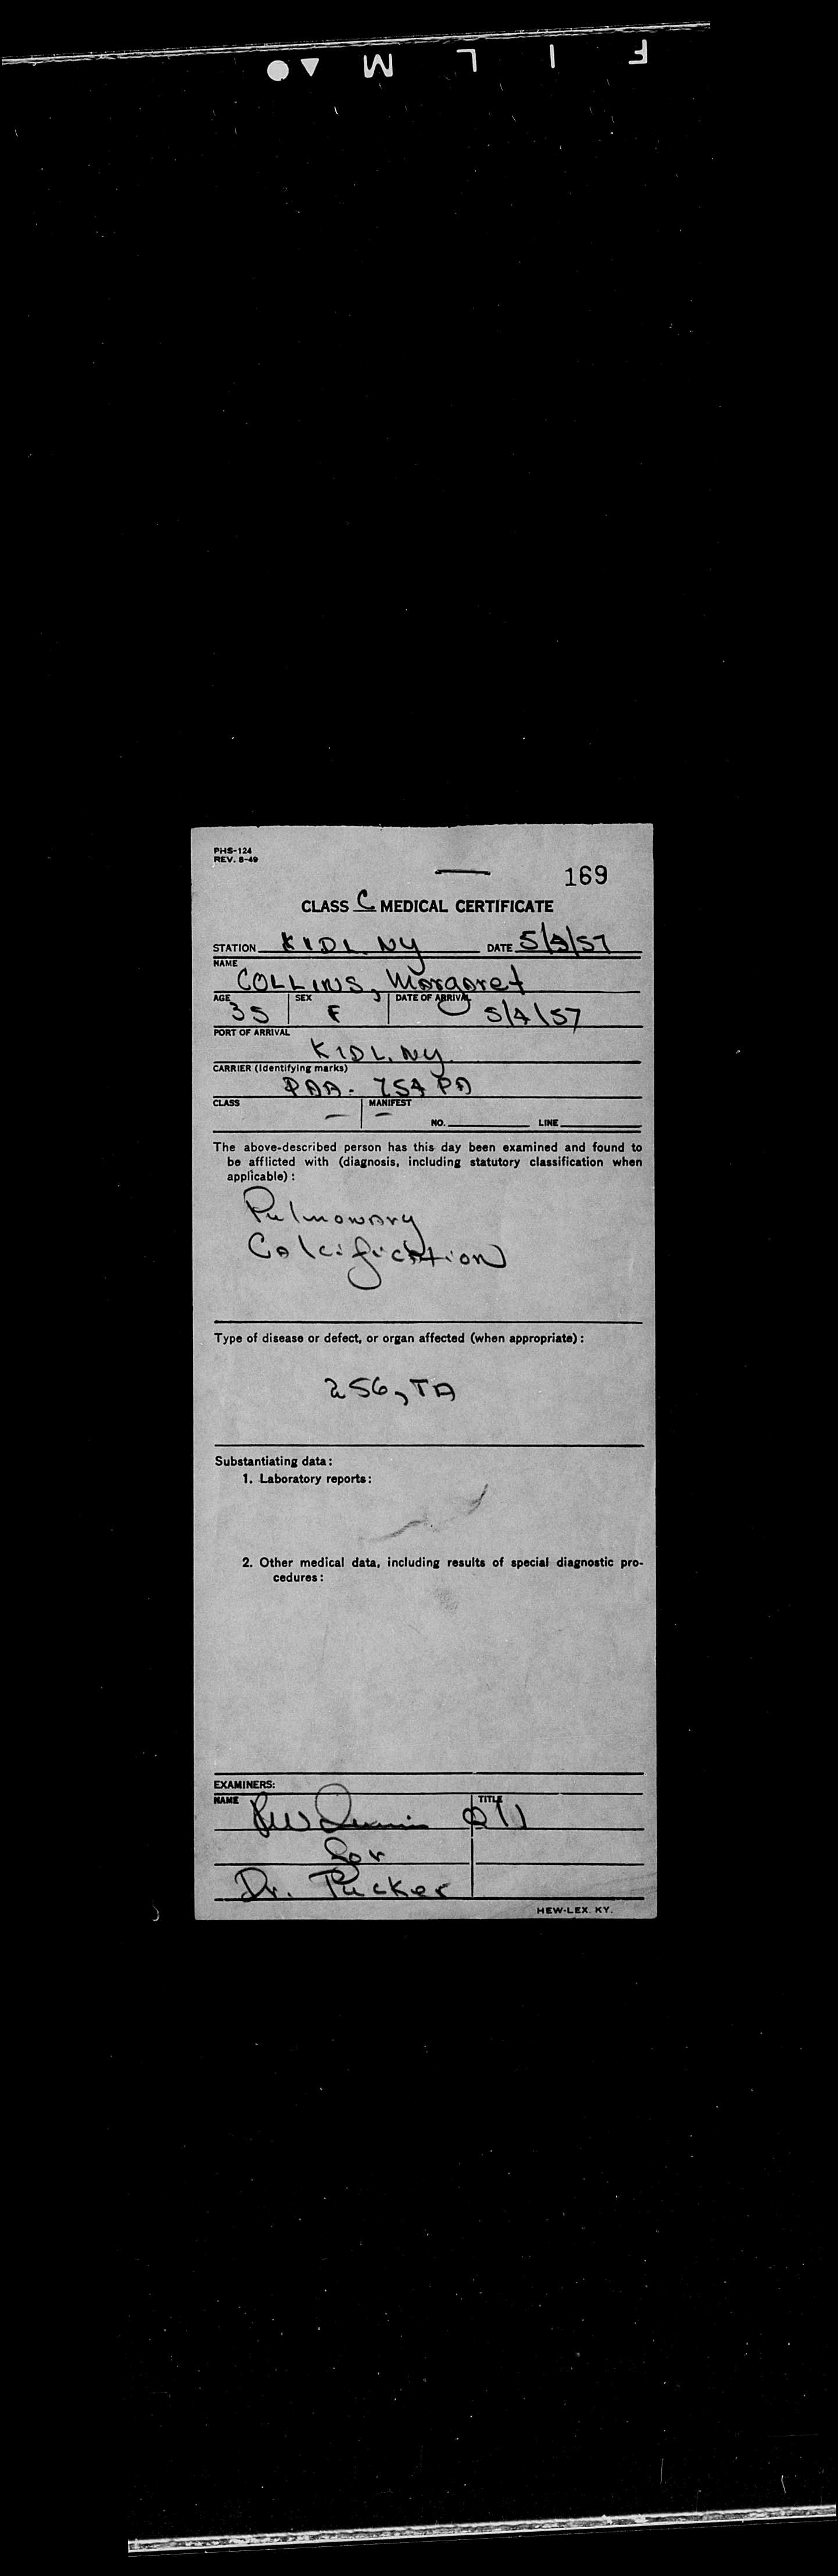 FILM
PHS-124
REV. 8-49
169
CLASS C MEDICAL CERTIFICATE
STATION KIDL NY DATE 5/9/57
NAME
COLLINS, Margaret
AGE 35 SEX F DATE OF ARRIVAL 5/4/57
PORT OF ARRIVAL
KIDL. NY
CARRIER (Identifying marks)
PAA - 754 PA
CLASS — MANIFEST —
NO. LINE
The above-described person has this day been examined and found to
be afflicted with (diagnosis, including statutory classification when
applicable):
Pulmonary
Calcification
Type of disease or defect, or organ affected (when appropriate):
256, TA
Substantiating data:
1. Laboratory reports:
2. Other medical data, including results of special diagnostic pro-
cedures:
EXAMINERS:
NAME TITLE
for
Dr. Tucker
HEW-LEX. KY.